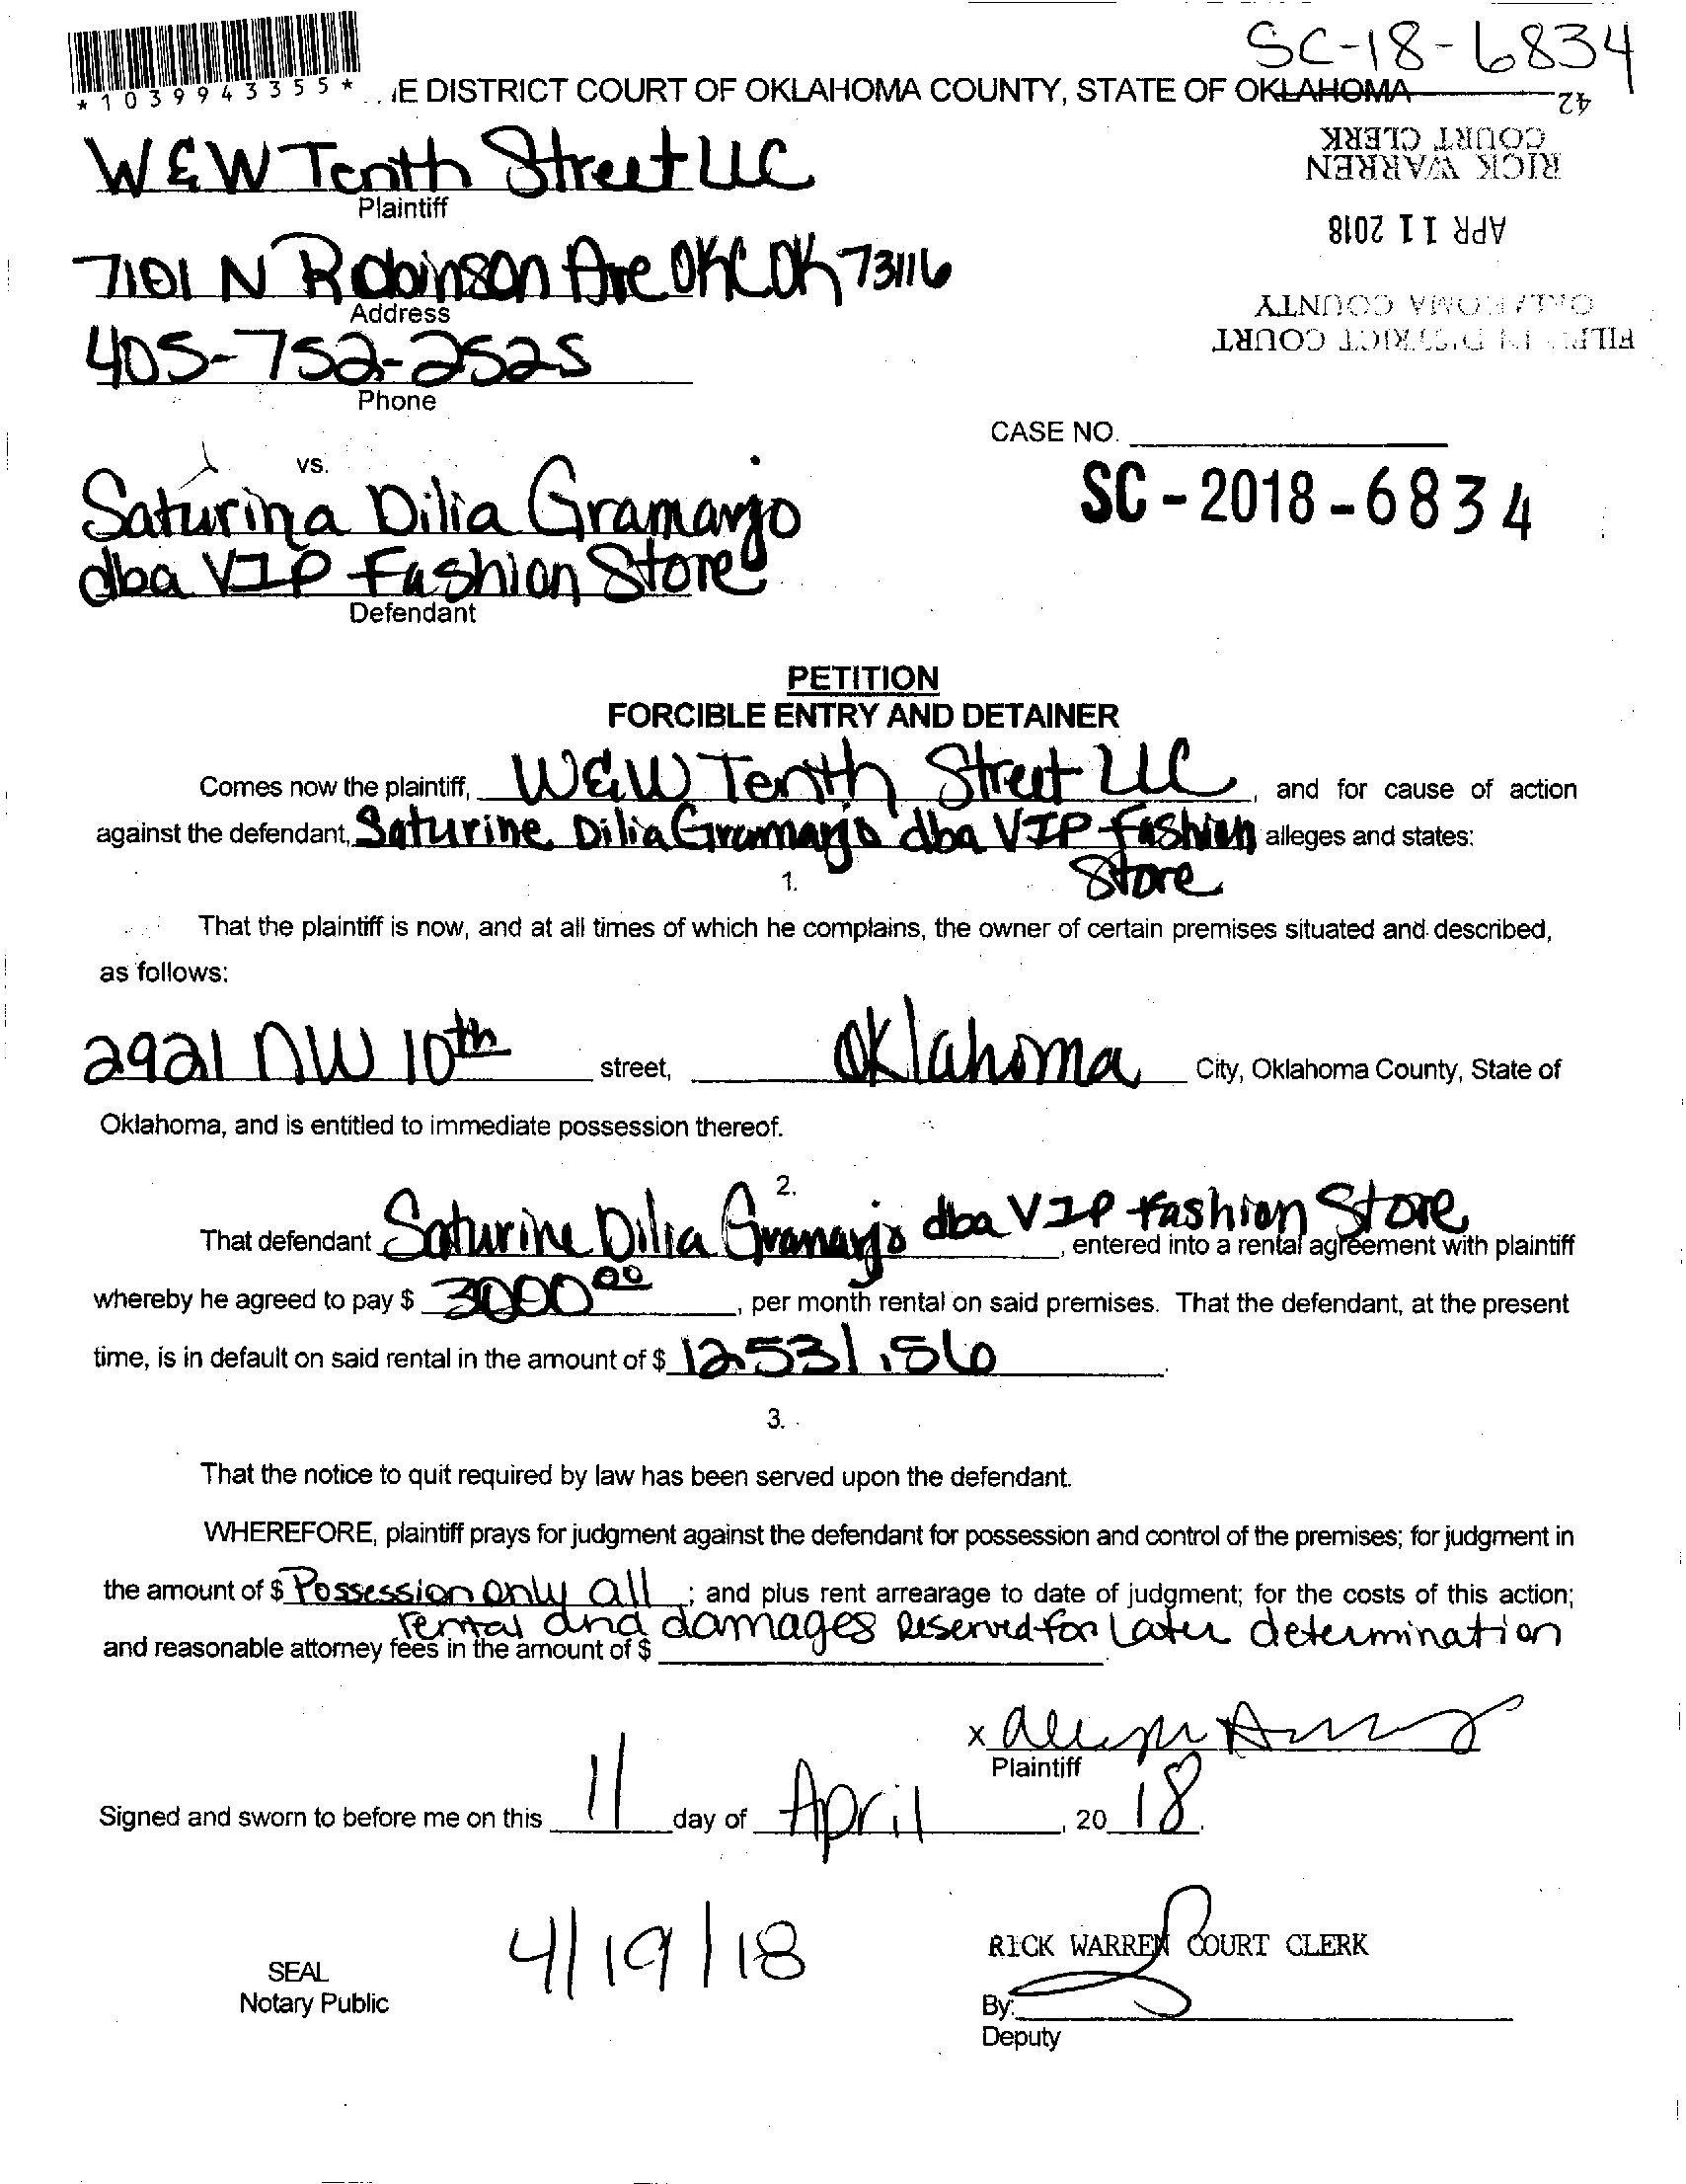 SC-18-6834
*1039943355*
E DISTRICT COURT OF OKLAHOMA COUNTY, STATE OF OKLAHOMA
42
COURT CLERK
RICK WARREN
APR 11 2018
OKLAHOMA COUNTY
FILED IN DISTRICT COURT
W&W Tenth Street LLC
Plaintiff
7101 N Robinson Ave OKC OK 73116
Address
405-752-2525
Phone
CASE NO.
SC-2018-6834
vs.
Saturina Dilia Gramarjo
dba VIP Fashion Store
Defendant
PETITION
FORCIBLE ENTRY AND DETAINER
Comes now the plaintiff, W&W Tenth Street LLC, and for cause of action
against the defendant, Saturine Dilia Gramarjo dba VIP Fashion alleges and states:
Store
1.
That the plaintiff is now, and at all times of which he complains, the owner of certain premises situated and described,
as follows:
2921 NW 10th street, Oklahoma City, Oklahoma County, State of
Oklahoma, and is entitled to immediate possession thereof.
2.
That defendant Saturine Dilia Gramarjo dba VIP Fashion Store, entered into a rental agreement with plaintiff
whereby he agreed to pay $ 3000 00, per month rental on said premises. That the defendant, at the present
time, is in default on said rental in the amount of $ 12531.56.
3.
That the notice to quit required by law has been served upon the defendant.
WHEREFORE, plaintiff prays for judgment against the defendant for possession and control of the premises; for judgment in
the amount of $ Possession only all; and plus rent arrearage to date of judgment; for the costs of this action;
rental and damages reserved for later determination
and reasonable attorney fees in the amount of $
x
Plaintiff
Signed and sworn to before me on this 11 day of April, 20 18.
4/19/18
RICK WARREN COURT CLERK
SEAL
Notary Public
By:
Deputy